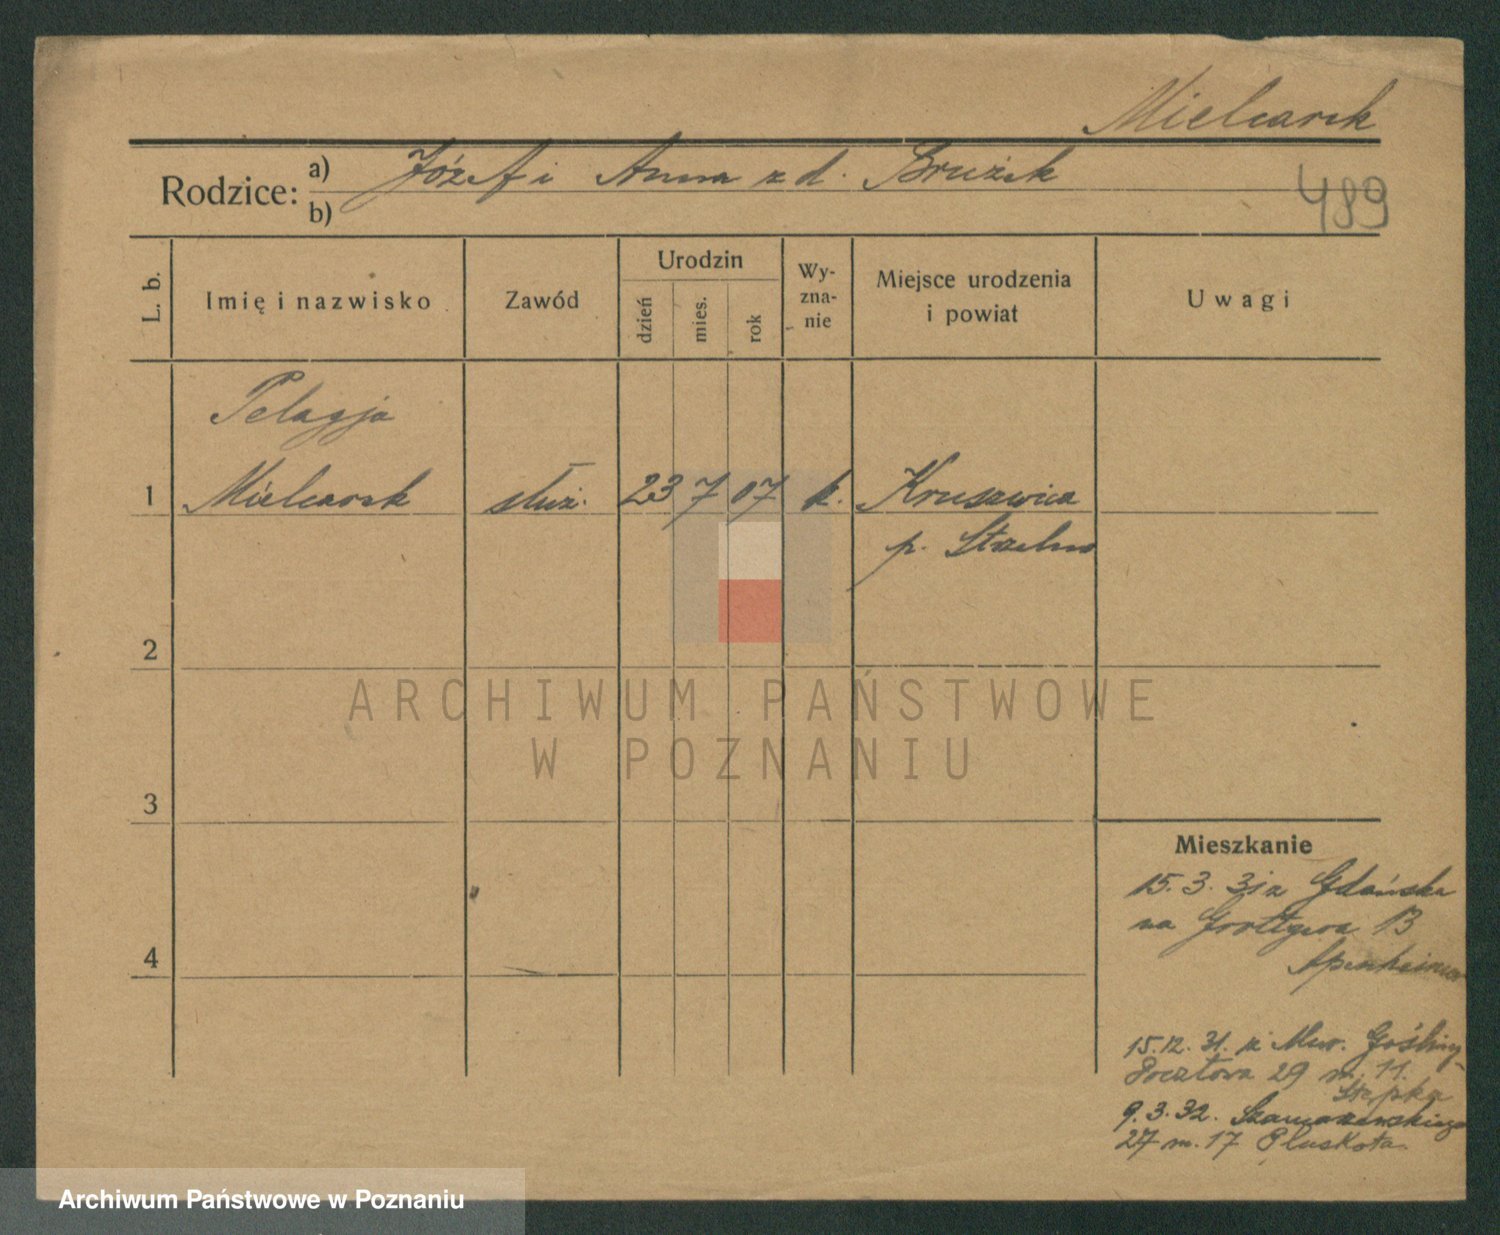 Mielcarek
Rodzice: a) Józef i Anna z d. Brużek
b)
489
L. b.
Imię i nazwisko
Zawód
Urodzin
dzień
mies.
rok
Wy-
zna-
nie
Miejsce urodzenia
i powiat
Uwagi
Pelagja
1 Mielcarek służ. 23 7 07 k. Kruszwica
p. Strzelno
2
ARCHIWUM PAŃSTWOWE
W POZNANIU
3
Mieszkanie
15. 3. 31 z Gdańska
na Grottgera 13
4
15.12.31. z Mur. Gośliny
Pocztowa 29 m. 11.
9.3.32. Szamarzewskiego
27 m. 17 Pluskota
Archiwum Państwowe w Poznaniu